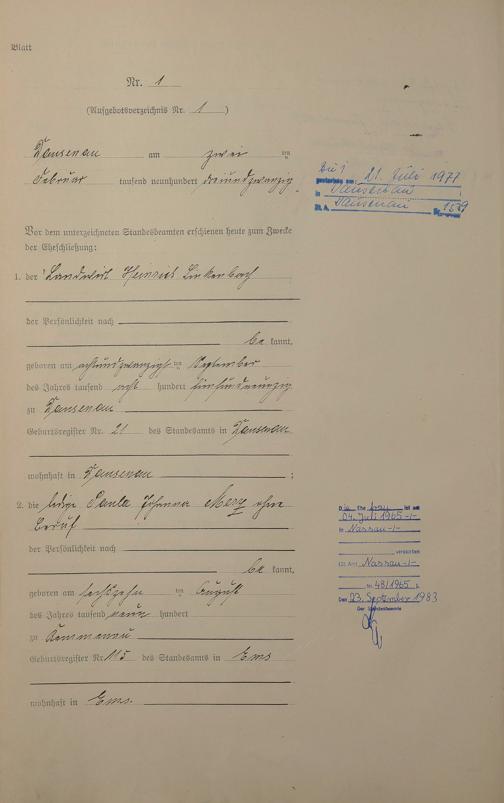 Blatt
Nr. 1
(Aufgebotsverzeichnis Nr. 1)
Dausenau am zwei ten
Februar tausend neunhundert dreiundzwanzig
Vor dem unterzeichneten Standesbeamten erschienen heute zum Zwecke
der Eheschließung:
1. der Landwirt Heinrich Linkenbach
der Persönlichkeit nach
be kannt,
geboren am achtundzwanzigsten September
des Jahres tausend acht hundert fünfundneunzig
zu Dausenau
Geburtsregister Nr. 21 des Standesamts in Dausenau
wohnhaft in Dausenau ;
2. die ledige Paula Johanna Merz ohne
Beruf
der Persönlichkeit nach
be kannt,
geboren am sechszehn ten August
des Jahres tausend neun hundert
zu Kemmenau
Geburtsregister Nr. 115 des Standesamts in Ems
wohnhaft in Ems.
Zu 1
gestorben am: 21. Juli 1977
in Dausenau
St. A. Dausenau Nr. 1539
Die Ehefrau ist am
04. Juli 1965 -/-
in Nassau -/-
verstorben
Nassau -/-
Nr. 48/1965
Den 23. September 1983
Der Standesbeamte